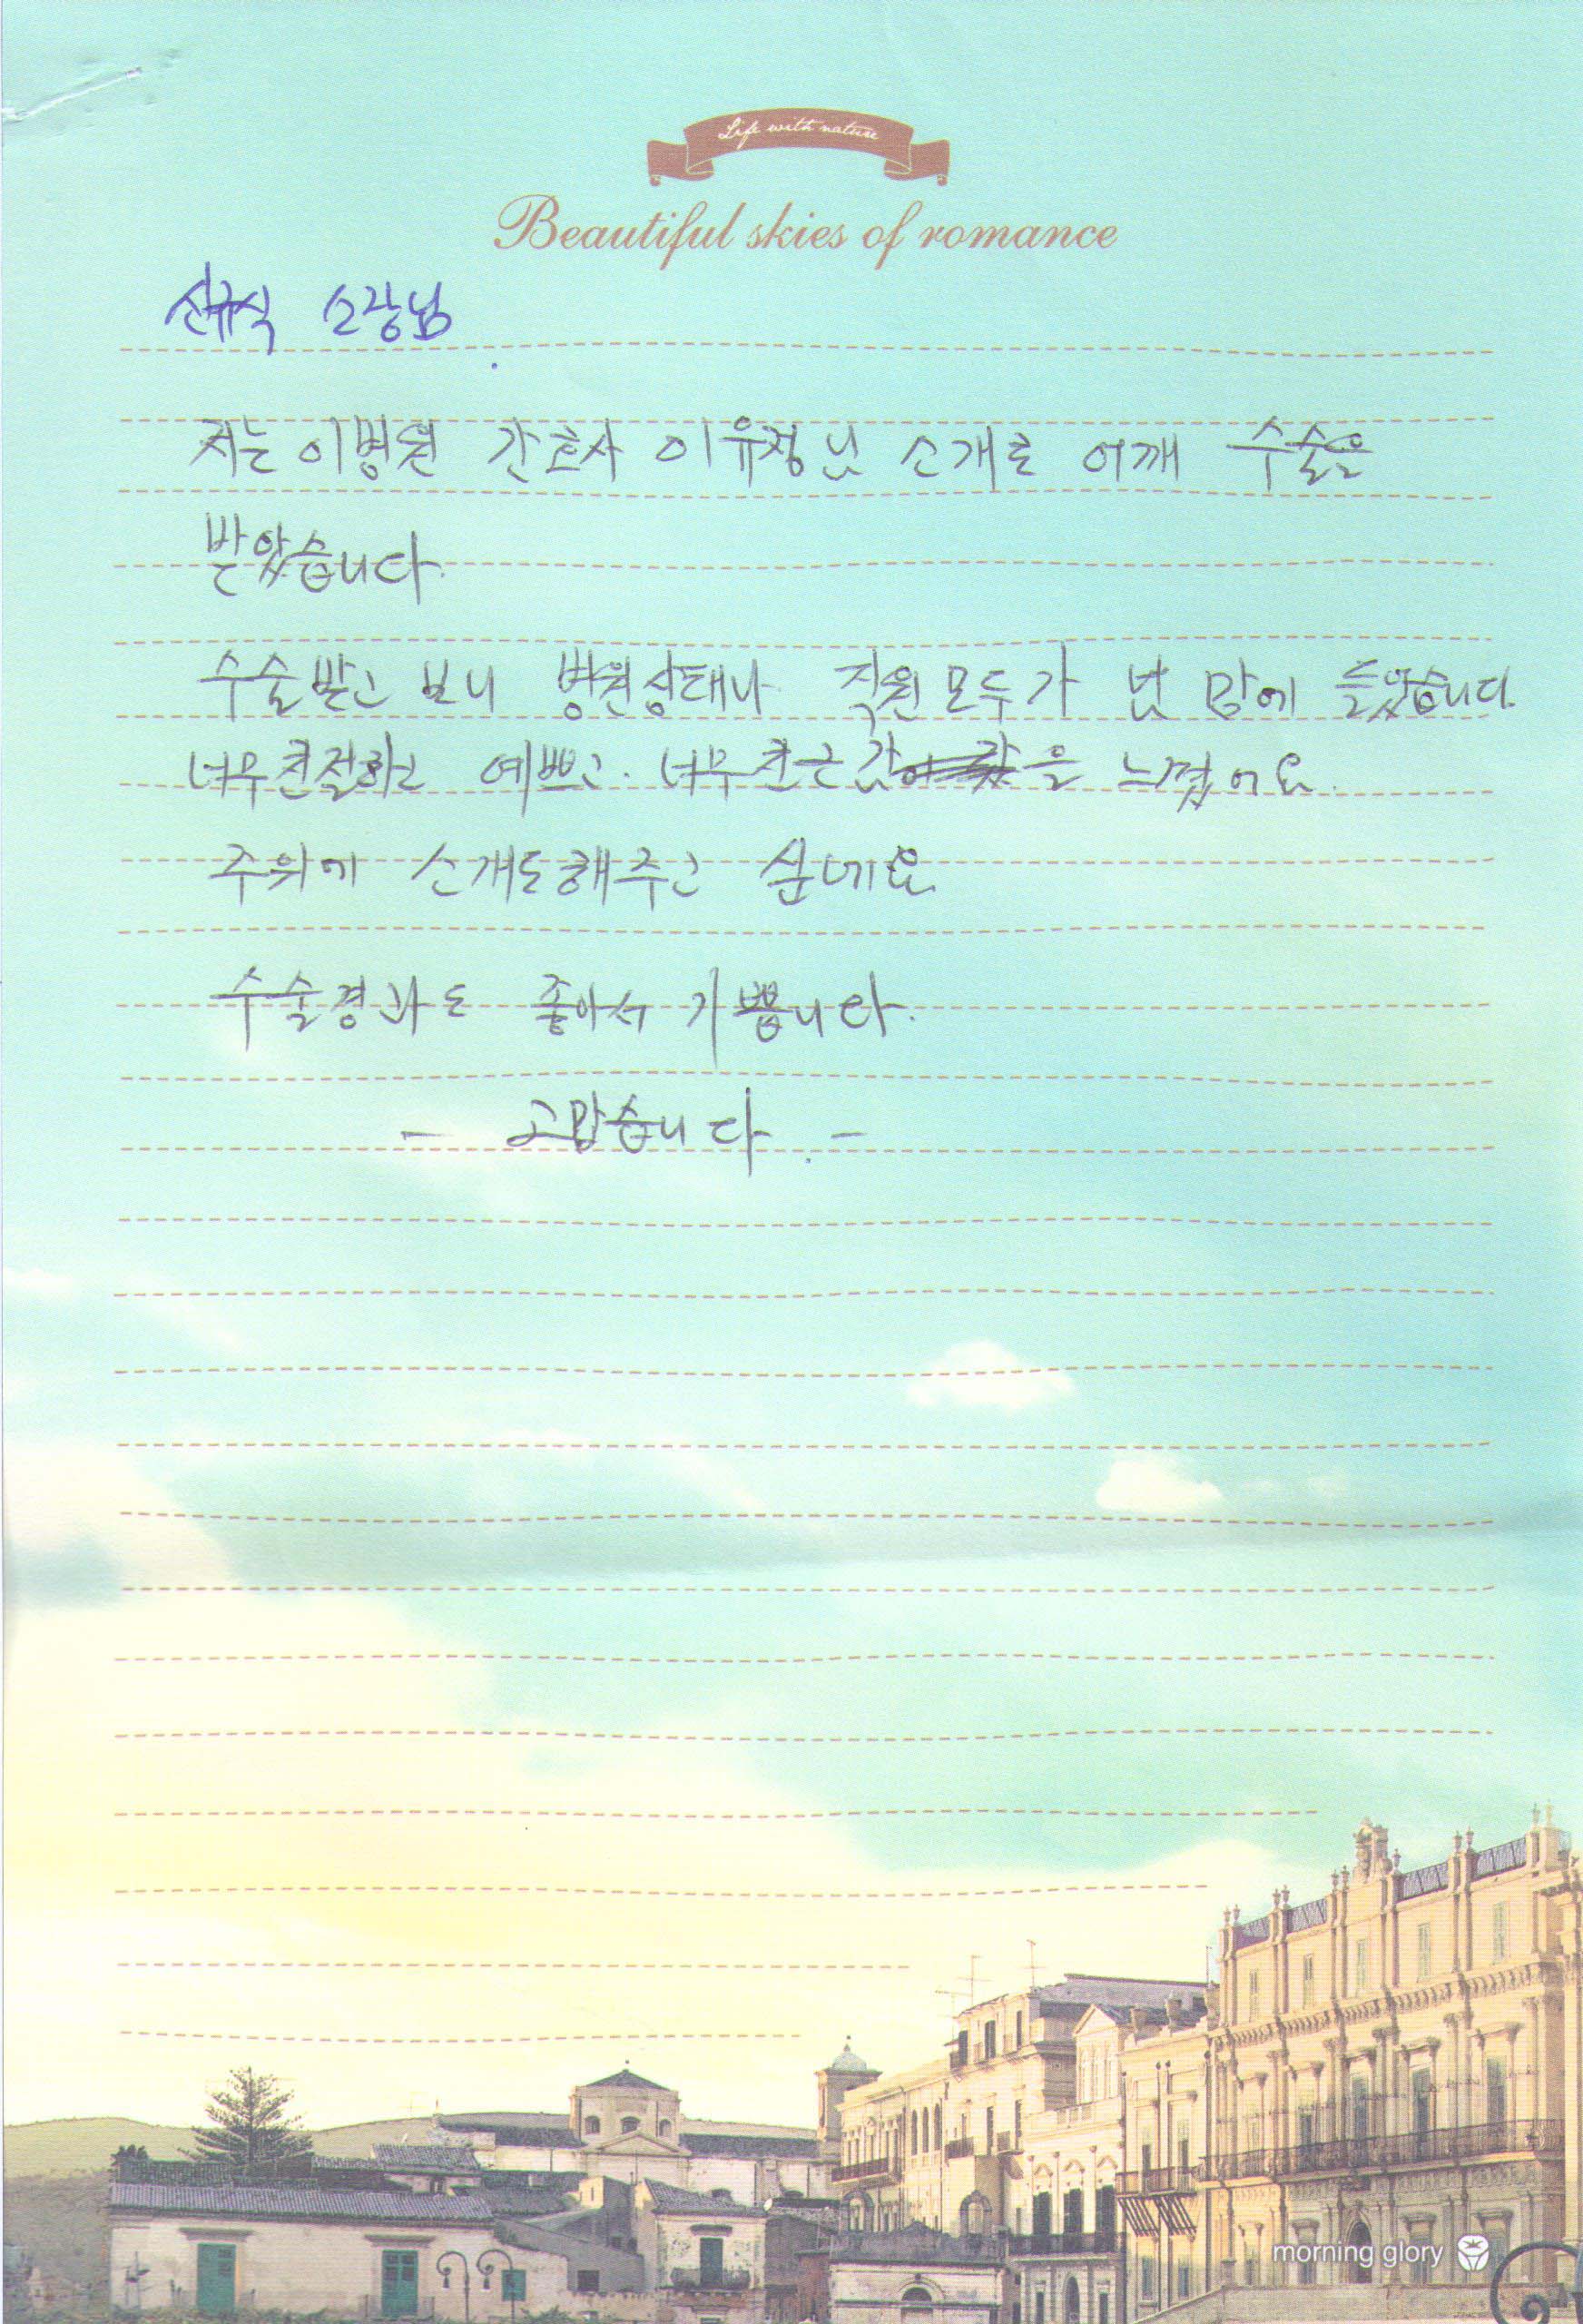 Life with nature
Beautiful skies of romance
신규식 소장님
저는 이병원 간호사 이유정님 소개로 어깨 수술을
받았습니다.
수술받고 보니 병원상태나 직원모두가 넘 맘에 들었습니다.
너무친절하고 예쁘고. 너무친근감을 느꼈어요.
주위에 소개도해주고 싶네요.
수술경과도 좋아서 기쁩니다.
- 고맙습니다. -
morning glory